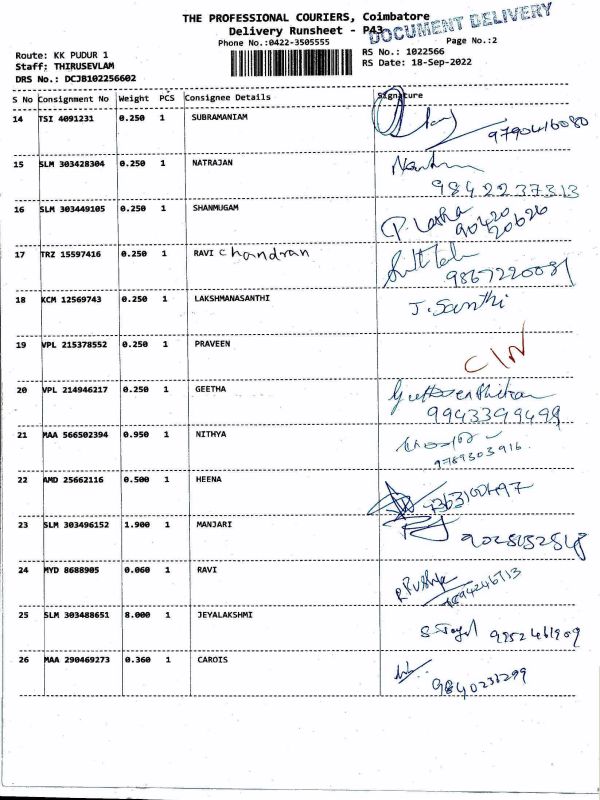 THE PROFESSIONAL COURIERS, Coimbatore
DOCUMENT DELIVERY
Delivery Runsheet - P43
Phone No.:0422-3505555 Page No.:2
Route: KK PUDUR 1 RS No.: 1022566
Staff: THIRUSEVLAM RS Date: 18-Sep-2022
DRS No.: DCJB102256602
S No Consignment No Weight PCS Consignee Details Signature
14 TSI 4091231 0.250 1 SUBRAMANIAM
9790416080
15 SLM 303428304 0.250 1 NATRAJAN
9842237313
16 SLM 303449105 0.250 1 SHANMUGAM
90420
20626
17 TRZ 15597416 0.250 1 RAVI Chandran
9867220081
18 KCM 12569743 0.250 1 LAKSHMANASANTHI J. Santhi
19 VPL 215378552 0.250 1 PRAVEEN
20 VPL 214946217 0.250 1 GEETHA
9943399499
21 MAA 566502394 0.950 1 NITHYA
9789303916
22 AMD 25662116 0.500 1 HEENA
23 SLM 303496152 1.900 1 MANJARI
24 MYD 8688905 0.060 1 RAVI R Pushpa
25 SLM 303488651 8.000 1 JEYALAKSHMI
9952461909
26 MAA 290469273 0.360 1 CAROIS
9840231299